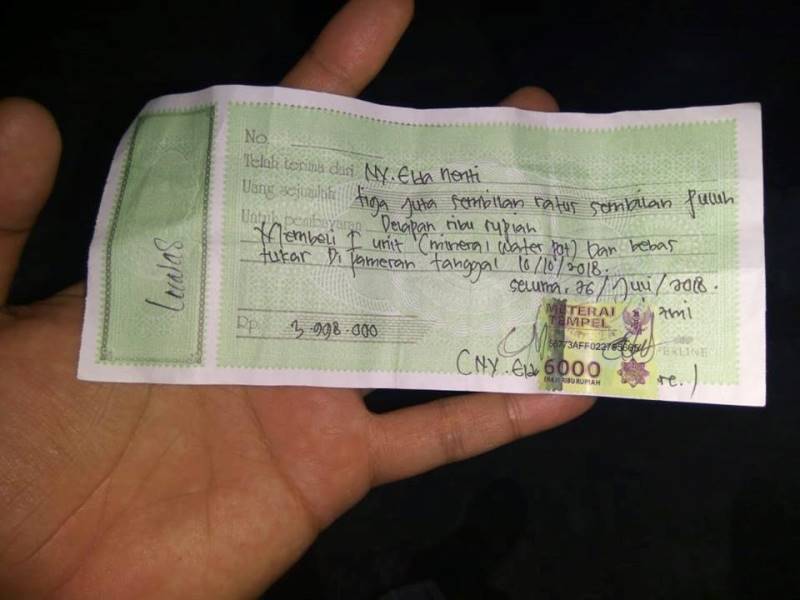 Luulas
No.
Telah terima dari NY. Elda Nenti
Uang sejumlah tiga juta sembilan ratus sembilan puluh
Untuk pembayaran Delapan ribu rupiah
Membeli 1 unit (mineral water pot) Dan bebas
tukar Di pameran tanggal 10/10/2018.
seluma, 26/Juni/2018.
Rp. 3.998.000
METERAI
TEMPEL
6000
ENAM RIBU RUPIAH
PERLINE
(NY. Elda